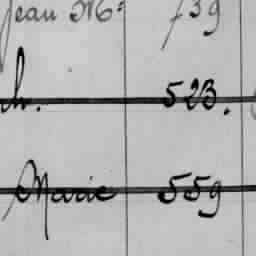 Jean M. 739
ch. 523.
Marie 559